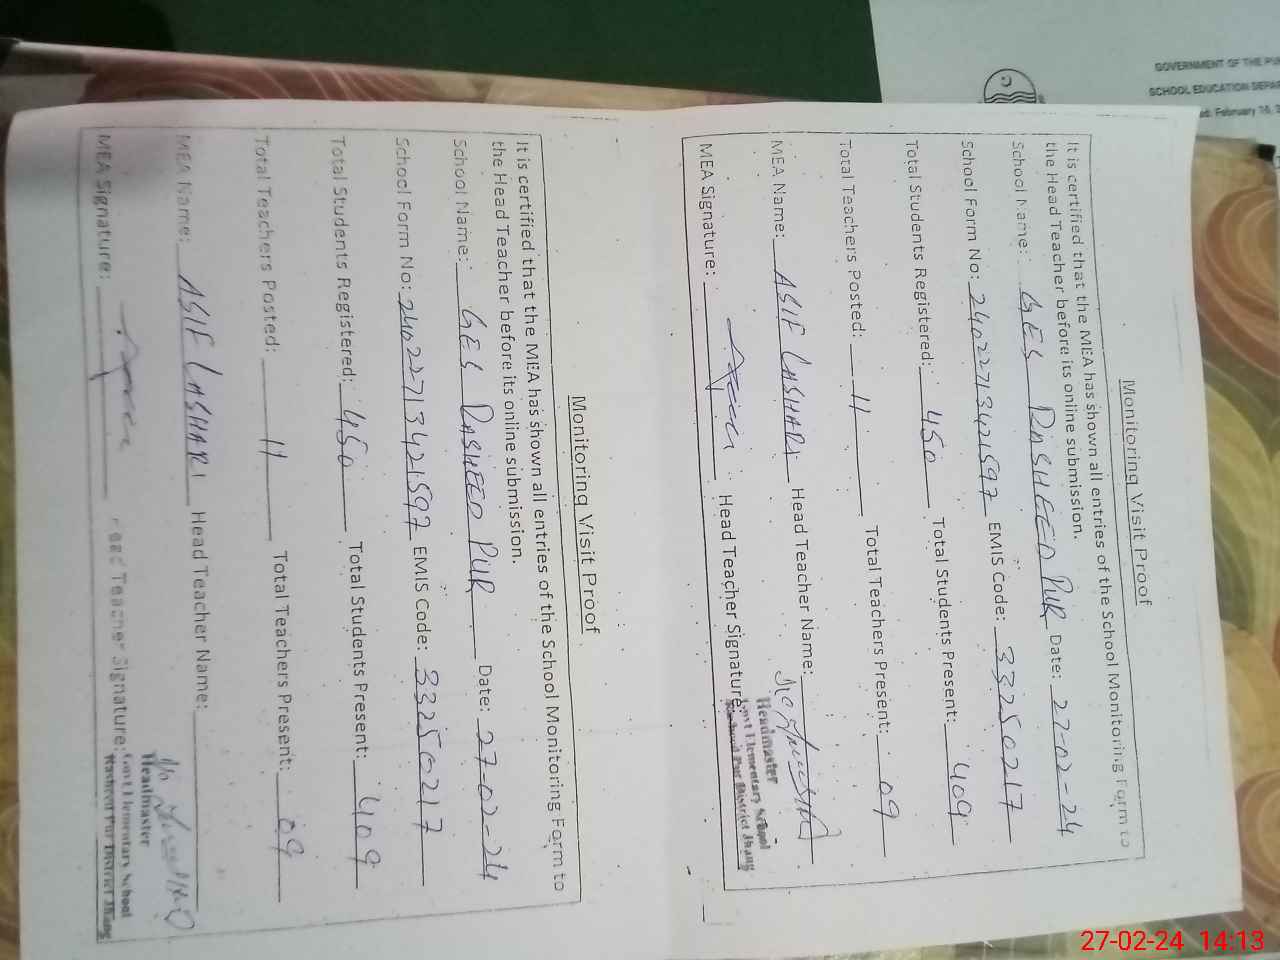 GOVERNMENT OF THE PU
SCHOOL EDUCATION DEPA
ed: February 16, 2
Monitoring Visit Proof
It is certified that the MEA has shown all entries of the School Monitoring Form to
the Head Teacher before its online submission.
School Name: GES RASHEED PUR Date: 27-02-24
School Form No: 24022713421597 EMIS Code: 33250217
Total Students Registered: 450 Total Students Present: 409
Total Teachers Posted: 11 Total Teachers Present: 09
MEA Name: ASIF LASHARI Head Teacher Name:
MEA Signature: Head Teacher Signature:
Headmaster
Govt Elementary School
Rasheed Pur District Jhang
Monitoring Visit Proof
It is certified that the MEA has shown all entries of the School Monitoring Form to
the Head Teacher before its online submission.
School Name: GES RASHEED PUR Date: 27-02-24
School Form No: 24022713421597 EMIS Code: 33250217
Total Students Registered: 450 Total Students Present: 409
Total Teachers Posted: 11 Total Teachers Present: 09
MEA Name: ASIF LASHARI Head Teacher Name:
MEA Signature: Head Teacher Signature:
Headmaster
Govt Elementary School
Rasheed Pur District Jhang
27-02-24 14:13